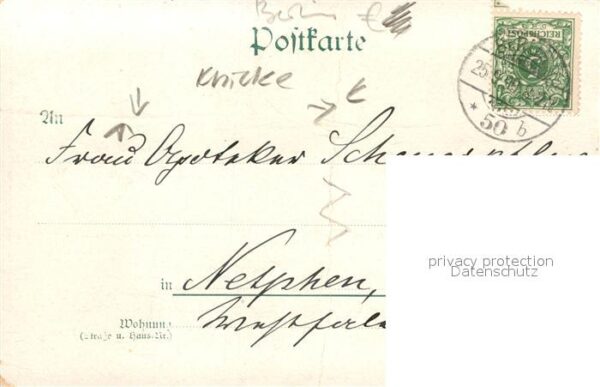 Berlin
Postkarte
REICHSPOST
Knicke
25
* 50 b
An
Frau Apoteker
privacy protection
Datenschutz
in Netphen,
Wohnung
Westfalen
(Straße u. Haus-Nr.)